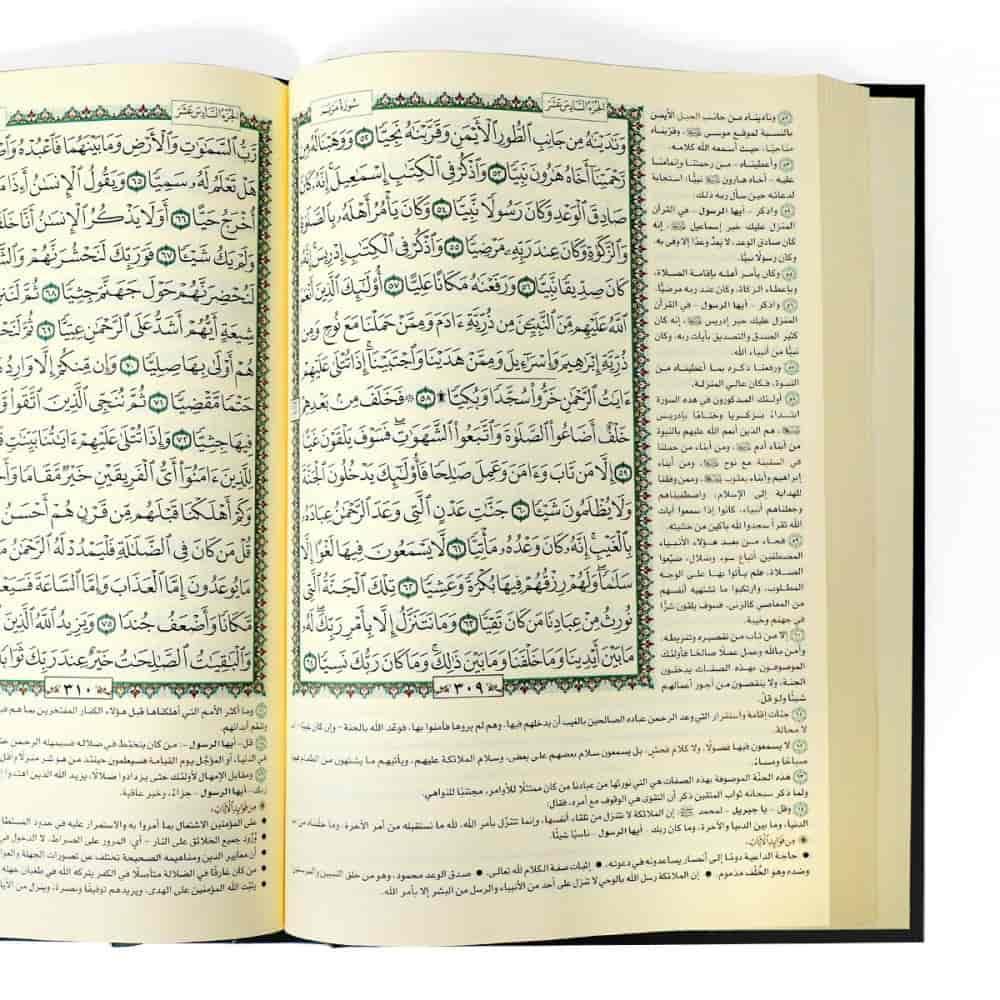 الجزء السادس عشر
سورة مريم
وَنَٰدَيْنَٰهُ مِن جَانِبِ ٱلطُّورِ ٱلْأَيْمَنِ وَقَرَّبْنَٰهُ نَجِيًّا ٥٢ وَوَهَبْنَا لَهُۥ مِن
رَّحْمَتِنَآ أَخَاهُ هَٰرُونَ نَبِيًّا ٥٣ وَٱذْكُرْ فِى ٱلْكِتَٰبِ إِسْمَٰعِيلَ إِنَّهُۥ كَانَ
صَادِقَ ٱلْوَعْدِ وَكَانَ رَسُولًا نَّبِيًّا ٥٤ وَكَانَ يَأْمُرُ أَهْلَهُۥ بِٱلصَّلَوٰةِ
وَٱلزَّكَوٰةِ وَكَانَ عِندَ رَبِّهِۦ مَرْضِيًّا ٥٥ وَٱذْكُرْ فِى ٱلْكِتَٰبِ إِدْرِيسَ إِنَّهُۥ
كَانَ صِدِّيقًا نَّبِيًّا ٥٦ وَرَفَعْنَٰهُ مَكَانًا عَلِيًّا ٥٧ أُو۟لَٰٓئِكَ ٱلَّذِينَ أَنْعَمَ
ٱللَّهُ عَلَيْهِم مِّنَ ٱلنَّبِيِّـۧنَ مِن ذُرِّيَّةِ ءَادَمَ وَمِمَّنْ حَمَلْنَا مَعَ نُوحٍ وَمِن
ذُرِّيَّةِ إِبْرَٰهِيمَ وَإِسْرَٰٓءِيلَ وَمِمَّنْ هَدَيْنَا وَٱجْتَبَيْنَآ إِذَا تُتْلَىٰ عَلَيْهِمْ
ءَايَٰتُ ٱلرَّحْمَٰنِ خَرُّوا۟ سُجَّدًا وَبُكِيًّا ۩ ٥٨ ۞ فَخَلَفَ مِنۢ بَعْدِهِمْ
خَلْفٌ أَضَاعُوا۟ ٱلصَّلَوٰةَ وَٱتَّبَعُوا۟ ٱلشَّهَوَٰتِ فَسَوْفَ يَلْقَوْنَ غَيًّا
٥٩ إِلَّا مَن تَابَ وَءَامَنَ وَعَمِلَ صَٰلِحًا فَأُو۟لَٰٓئِكَ يَدْخُلُونَ ٱلْجَنَّةَ
وَلَا يُظْلَمُونَ شَيْـًٔا ٦٠ جَنَّٰتِ عَدْنٍ ٱلَّتِى وَعَدَ ٱلرَّحْمَٰنُ عِبَادَهُۥ
بِٱلْغَيْبِ إِنَّهُۥ كَانَ وَعْدُهُۥ مَأْتِيًّا ٦١ لَّا يَسْمَعُونَ فِيهَا لَغْوًا إِلَّا
سَلَٰمًا وَلَهُمْ رِزْقُهُمْ فِيهَا بُكْرَةً وَعَشِيًّا ٦٢ تِلْكَ ٱلْجَنَّةُ ٱلَّتِى
نُورِثُ مِنْ عِبَادِنَا مَن كَانَ تَقِيًّا ٦٣ وَمَا نَتَنَزَّلُ إِلَّا بِأَمْرِ رَبِّكَ لَهُۥ
مَا بَيْنَ أَيْدِينَا وَمَا خَلْفَنَا وَمَا بَيْنَ ذَٰلِكَ وَمَا كَانَ رَبُّكَ نَسِيًّا ٦٤
٣٠٩
وناديناه من جانب الجبل الأيمن
بالنسبة لموقع موسى ﷺ، وقربناه
مناجيًا، حيث أسمعه الله كلامه.
وأعطيناه - من رحمتنا وإنعامنا
عليه - أخاه هارون نبيًّا؛ استجابة
لدعائه حين سأل ربه ذلك.
واذكر - أيها الرسول - في القرآن
المنزل عليك خبر إسماعيل، إنه
كان صادق الوعد، لا يعد وعدًا إلا وفى به،
وكان رسولًا نبيًّا.
وكان يأمر أهله بإقامة الصلاة،
وبإعطاء الزكاة، وكان عند ربه مرضيًّا.
واذكر - أيها الرسول - في القرآن
المنزل عليك خبر إدريس، إنه كان
كثير الصدق والتصديق بآيات ربه، وكان
نبيًّا من أنبياء الله.
ورفعنا ذكره بما أعطيناه من
النبوة، فكان عالي المنزلة.
أولئك المذكورون في هذه السورة
ابتداءً بزكريا وختامًا بإدريس
، هم الذين أنعم الله عليهم بالنبوة
من أبناء آدم، ومن أبناء من حملنا
في السفينة مع نوح، ومن أبناء
إبراهيم وأبناء يعقوب، وممن وفقنا
للهداية إلى الإسلام، واصطفيناهم
وجعلناهم أنبياء، كانوا إذا سمعوا آيات
الله تقرأ سجدوا لله باكين من خشيته.
فجاء من بعد هؤلاء الأنبياء
المصطفين أتباع سوء وضلال، ضيّعوا
الصلاة، فلم يأتوا بها على الوجه
المطلوب، وارتكبوا ما تشتهيه أنفسهم
من المعاصي كالزنى، فسوف يلقون شرًّا
في جهنم وخيبة.
إلا من تاب من تقصيره وتفريطه،
وآمن بالله وعمل عملًا صالحًا فأولئك
الموصوفون بهذه الصفات يدخلون
الجنة، ولا ينقصون من أجور أعمالهم
شيئًا ولو قلّ.
جنّات إقامة واستقرار التي وعد الرحمن عباده الصالحين بالغيب أن يدخلهم فيها، وهم لم يروها فآمنوا بها، فوعْد الله بالجنة - وإن كان غيبًا -
لا محالة.
لا يسمعون فيها فضولًا، ولا كلام فحش، بل يسمعون سلام بعضهم على بعض، وسلام الملائكة عليهم، ويأتيهم ما يشتهون من الطعام فيها
صباحًا ومساءً.
هذه الجنّة الموصوفة بهذه الصفات هي التي نورثها من عبادنا من كان ممتثلًا للأوامر، مجتنبًا للنواهي.
ولما ذكر سبحانه ثواب المتقين ذكر أن التقوى هي الوقوف مع أمره، فقال:
وقل - يا جبريل - لمحمد ﷺ: إن الملائكة لا تتنزل من تلقاء أنفسها، وإنما تتنزّل بأمر الله، لله ما نستقبله من أمر الآخرة، وما خلّفناه من
الدنيا، وما بين الدنيا والآخرة، وما كان ربك - أيها الرسول - ناسيًا شيئًا.
من فوائد الآيات:
• حاجة الداعية دومًا إلى أنصار يساعدونه في دعوته. • إثبات صفة الكلام لله تعالى. • صدق الوعد محمود، وهو من خلق النبيين والمرسلين
وضده وهو الخُلْف مذموم. • إن الملائكة رسل الله بالوحي لا تنزل على أحد من الأنبياء والرسل من البشر إلا بأمر الله.
الجزء السادس عشر
رَّبُّ ٱلسَّمَٰوَٰتِ وَٱلْأَرْضِ وَمَا بَيْنَهُمَا فَٱعْبُدْهُ
هَلْ تَعْلَمُ لَهُۥ سَمِيًّا ٦٥ وَيَقُولُ ٱلْإِنسَٰنُ أَءِذَا مَا
أُخْرَجُ حَيًّا ٦٦ أَوَلَا يَذْكُرُ ٱلْإِنسَٰنُ أَنَّا
وَلَمْ يَكُ شَيْـًٔا ٦٧ فَوَرَبِّكَ لَنَحْشُرَنَّهُمْ
لَنُحْضِرَنَّهُمْ حَوْلَ جَهَنَّمَ جِثِيًّا ٦٨ ثُمَّ
شِيعَةٍ أَيُّهُمْ أَشَدُّ عَلَى ٱلرَّحْمَٰنِ عِتِيًّا ٦٩ ثُمَّ
هُمْ أَوْلَىٰ بِهَا صِلِيًّا ٧٠ وَإِن مِّنكُمْ إِلَّا وَارِدُهَا
حَتْمًا مَّقْضِيًّا ٧١ ثُمَّ نُنَجِّى ٱلَّذِينَ ٱتَّقَوا۟
فِيهَا جِثِيًّا ٧٢ وَإِذَا تُتْلَىٰ عَلَيْهِمْ ءَايَٰتُنَا بَيِّنَٰتٍ
لِلَّذِينَ ءَامَنُوٓا۟ أَىُّ ٱلْفَرِيقَيْنِ خَيْرٌ مَّقَامًا
وَكَمْ أَهْلَكْنَا قَبْلَهُم مِّن قَرْنٍ هُمْ أَحْسَنُ
قُلْ مَن كَانَ فِى ٱلضَّلَٰلَةِ فَلْيَمْدُدْ لَهُ ٱلرَّحْمَٰنُ
مَا يُوعَدُونَ إِمَّا ٱلْعَذَابَ وَإِمَّا ٱلسَّاعَةَ
مَّكَانًا وَأَضْعَفُ جُندًا ٧٥ وَيَزِيدُ ٱللَّهُ ٱلَّذِينَ
وَٱلْبَٰقِيَٰتُ ٱلصَّٰلِحَٰتُ خَيْرٌ عِندَ رَبِّكَ ثَوَابًا
٣١٠
وما أكثر الأمم التي أهلكناها قبل هؤلاء الكفار المفتخرين بما هم
وتنعم أبدانهم.
قل - أيها الرسول - : من كان يتخبّط في ضلاله فسيمهله الرحمن
في الدنيا، أو المؤجّل يوم القيامة فسيعلمون حينئذ من هو شر منزلًا
ومقابل الإمهال لأولئك حتى يزدادوا ضلالًا، يزيد الله الذين اهتدوا
ربك - أيها الرسول - جزاءً، وخير عاقبة.
من فوائد الآيات:
• على المؤمنين الاشتغال بما أمروا به والاستمرار عليه في حدود
• وُرُود جميع الخلائق على النار - أي: المرور على الصراط، لا الدخول في
• أن معايير الدين ومفاهيمه الصحيحة تختلف عن تصورات الجهلة
• من كان غارقًا في الضلالة متأصلًا في الكفر يتركه الله في طغيان جهله
• يثبّت الله المؤمنين على الهدى، ويزيدهم توفيقًا ونصرة، وينزل من